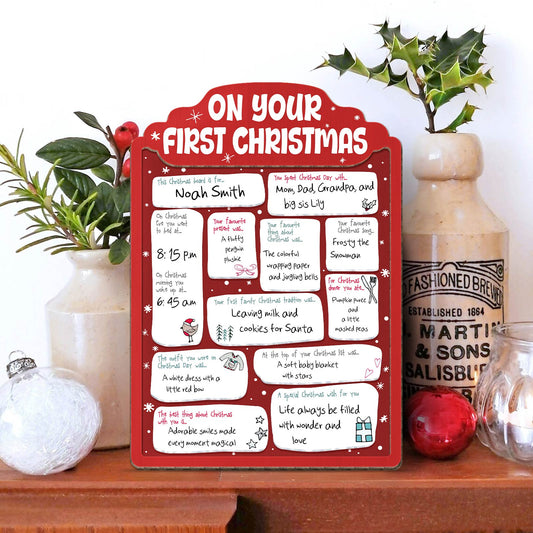 ON YOUR
FIRST CHRISTMAS
This Christmas board is for...
Noah Smith
You spent Christmas Day with...
Mom, Dad, Grandpa, and
big sis Lily
On Christmas
Eve you went
to bed at...
8:15 pm
On Christmas
morning you
woke up at...
6:45 am
Your favourite
present was...
A fluffy
penguin
plushie
Your favourite
thing about
Christmas was...
The colorful
wrapping paper
and jingling bells
Your favourite
Christmas Song...
Frosty the
Snowman
For Christmas
dinner you ate...
Pumpkin puree
and a little
mashed peas
Your first family Christmas tradition was...
Leaving milk and
cookies for Santa
The outfit you wore on
Christmas Day was...
A white dress with a
little red bow
At the top of your Christmas list was...
A soft baby blanket
with stars
The best thing about Christmas
with you is...
Adorable smiles made
every moment magical
A special Christmas wish for you
Life always be filled
with wonder and
love
FASHIONED BREWE
ESTABLISHED 1864
MARTIN
& SONS
SALISBU